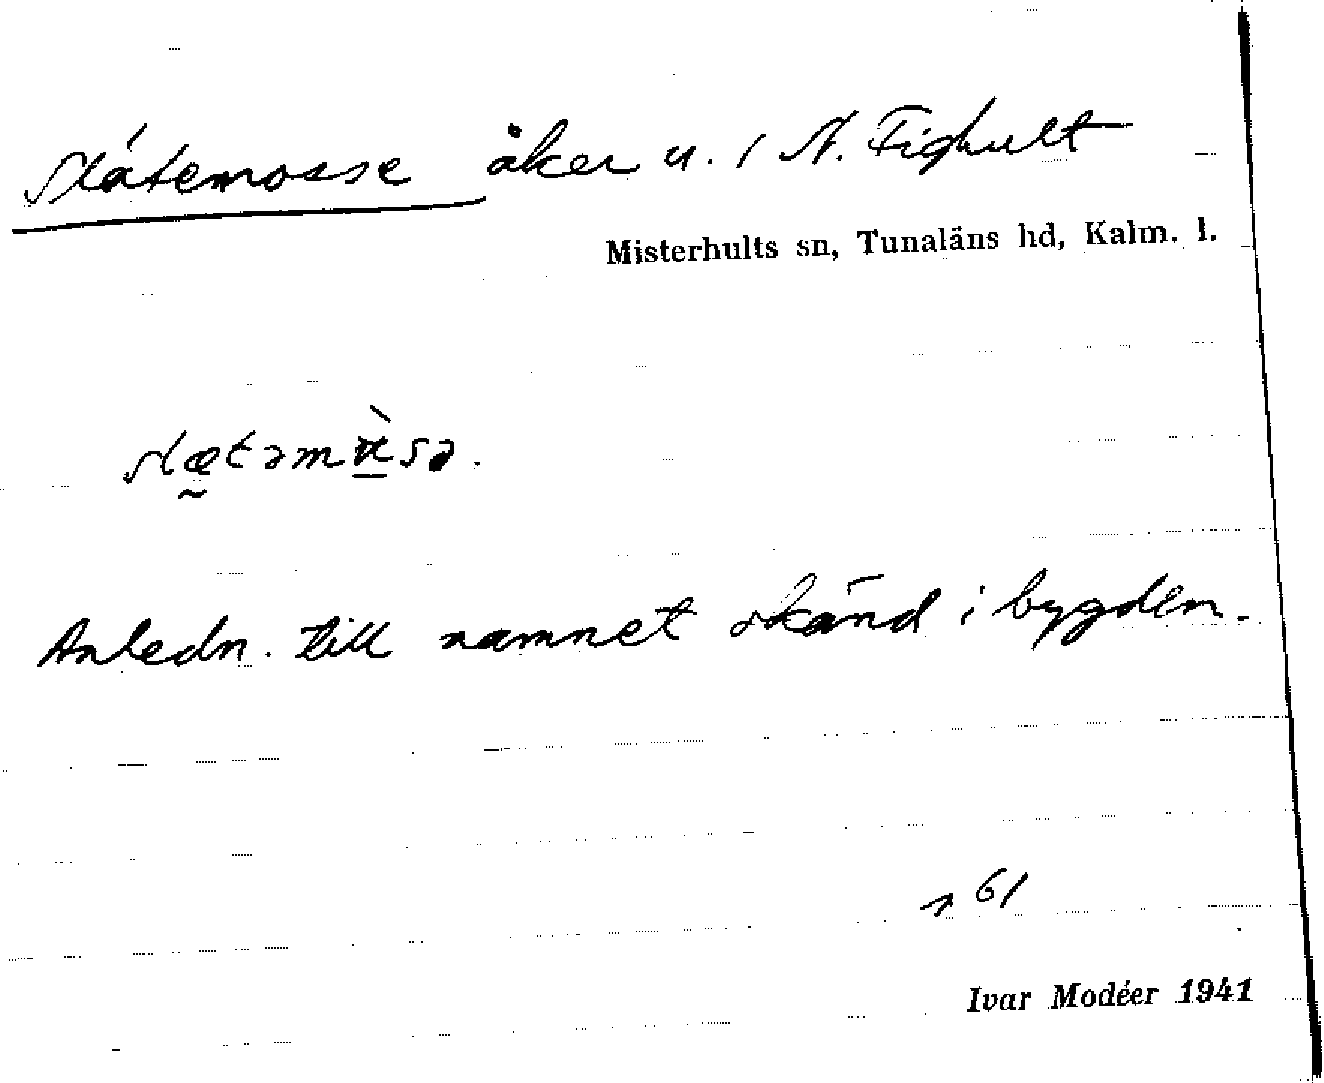 Slátemosse åker u. 1 N. Fighult
Misterhults sn, Tunaläns hd, Kalm. l.
slætəmùsə.
Anledn. till namnet okänd i bygden.
s 61
Ivar Modéer 1941